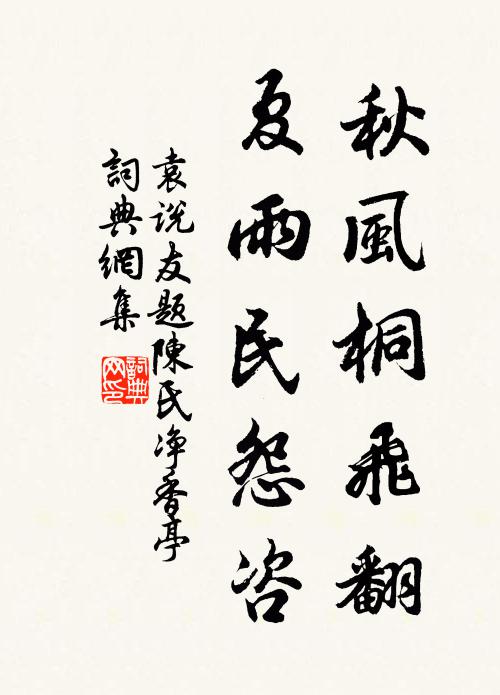 秋風桐飛翻
夏雨民怨咨
袁说友题陳民净香亭
詞典網集
詞典网印